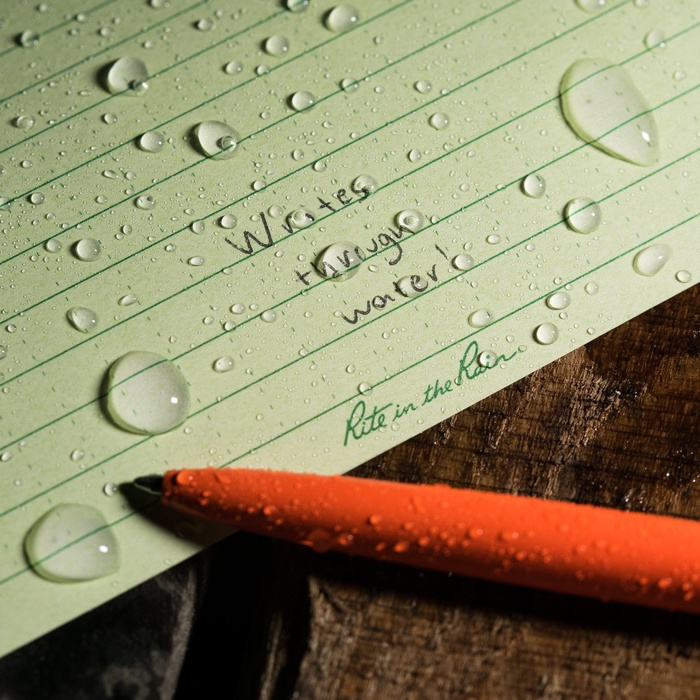 Writes
through
water!
Rite in the Rain